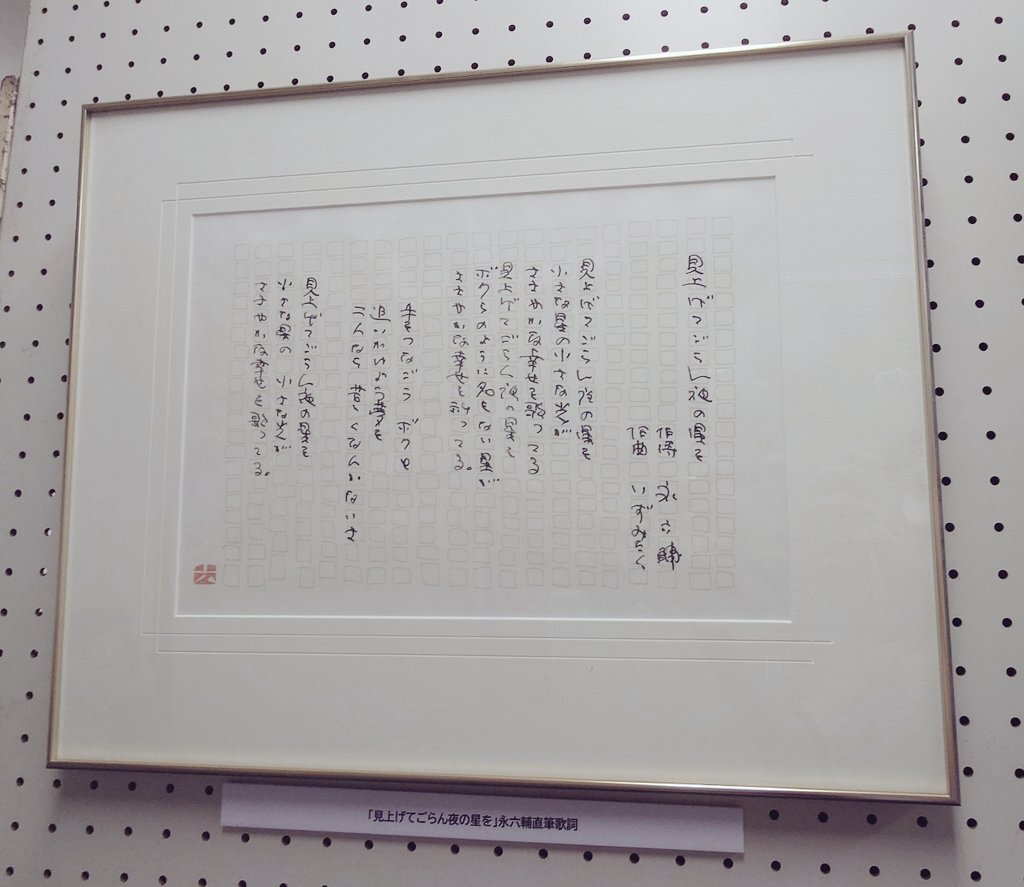 見上げてごらん夜の星を
作詞 永六輔
作曲 いずみたく
見上げてごらん夜の星を
小さな星の小さな光が
ささやかな幸せを歌ってる
見上げてごらん夜の星を
ボクらのように名もない星が
ささやかな幸せを祈ってる。
手をつなごう ボクと
追いかけよう夢を
二人なら 苦しくなんかないさ
見上げてごらん夜の星を
小さな星の 小さな光が
ささやかな幸せを歌ってる。
六
「見上げてごらん夜の星を」永六輔直筆歌詞